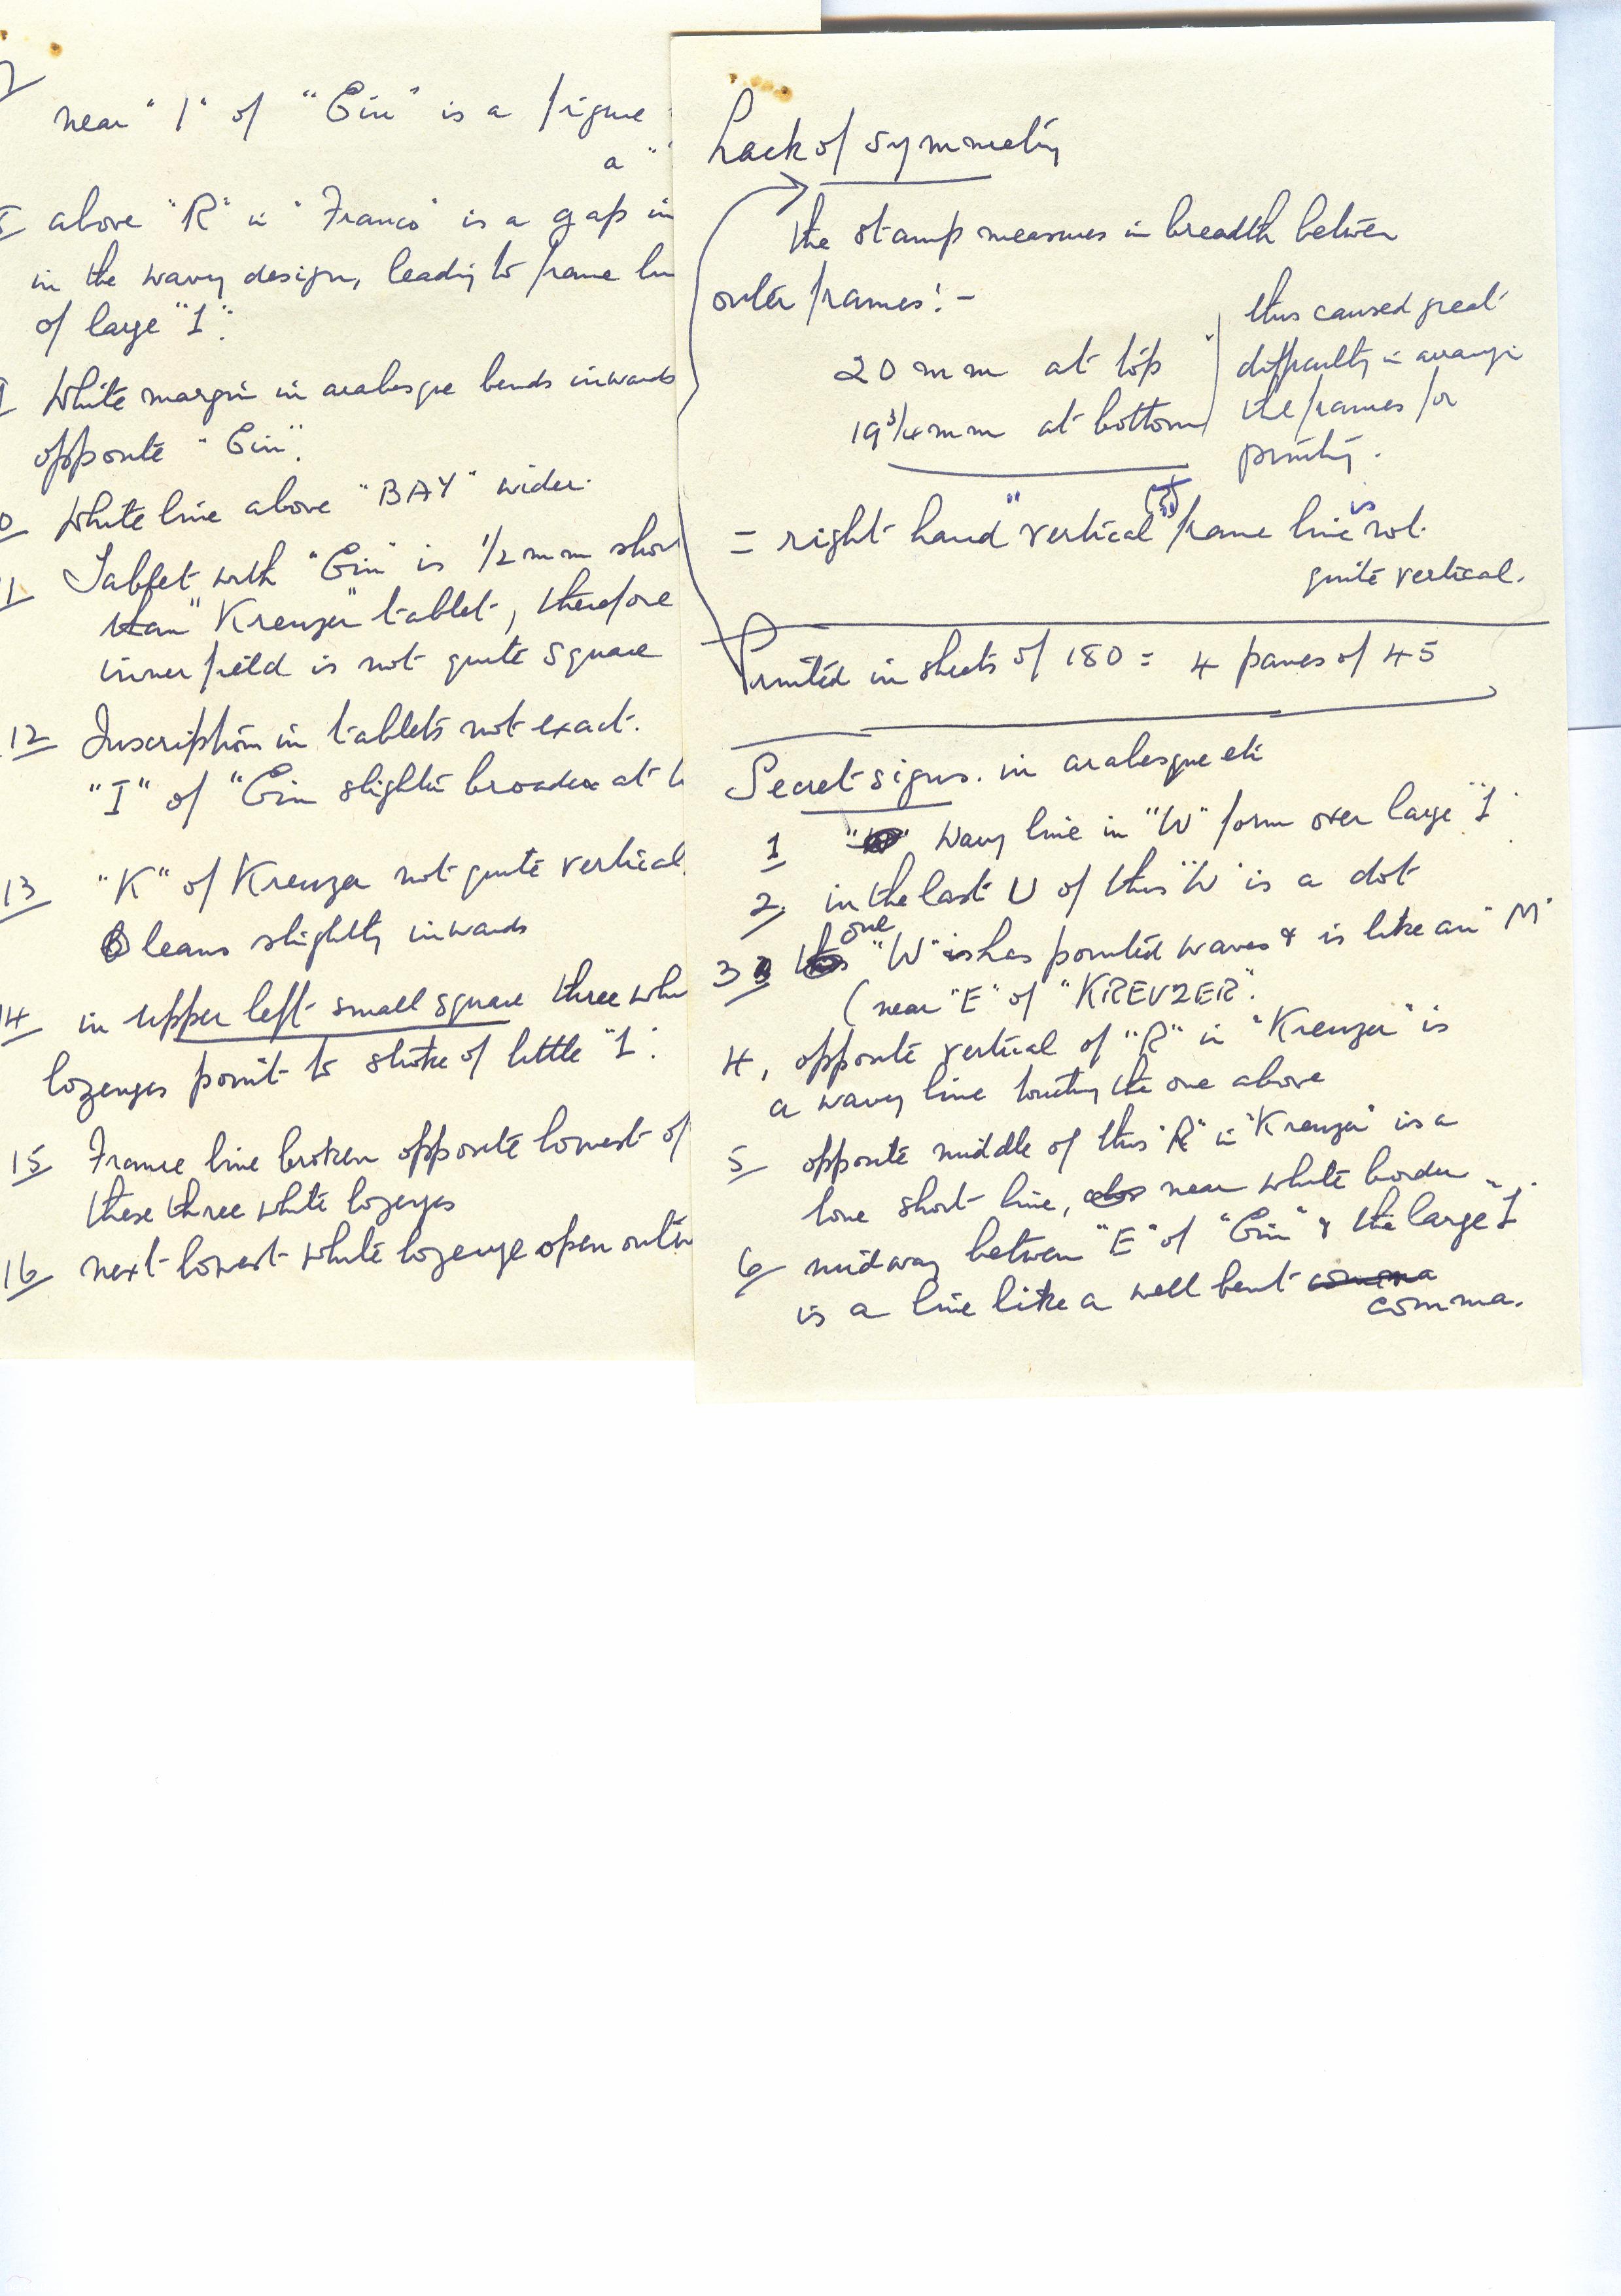 Lack of symmetry
the stamp measures in breadth between
outer frames: -
20 mm at top
19 3/4 mm at bottom
this caused great
difficulty in arrangi
the frames for
printing.
= right hand "vertical" (?) frame line is not
quite vertical.
Printed in sheets of 180 = 4 panes of 45
Secret signs. in arabesque etc
1 wavy line in "W" form over large "1".
2. in the last U of this "W" is a dot
3 one "W" has pointed waves & is like an "M"
(near "E" of "KREVZER".
4, opposite vertical of "R" in "Kreuzer" is
a wavy line touching the one above
5 opposite middle of this "R" in "Kreuzer" is a
lone short line, near white border
6 midway between "E" of "Ein" & the large "1"
is a line like a well bent comma
comma.
near "I" of "Ein" is a figure
a "
above "R" in "Franco" is a gap in
in the wavy design, leading to frame lin
of large "1".
White margin in arabesque bends inwards
opposite "Ein".
0 White line above "BAY" wider.
11 Tablet with "Ein" is 1/2 mm shor
than "Kreuzer" tablet, therefore
inner field is not quite square
12 Inscription in tablets not exact.
"I" of "Ein slightly broader at
13 "K" of Kreuzer not quite vertical.
leans slightly inwards
14 in upper left small square three whi
lozenges point to stroke of little "1".
15 Frame line broken opposite lowest of
these three white lozenges
16 next lowest white lozenge open outw